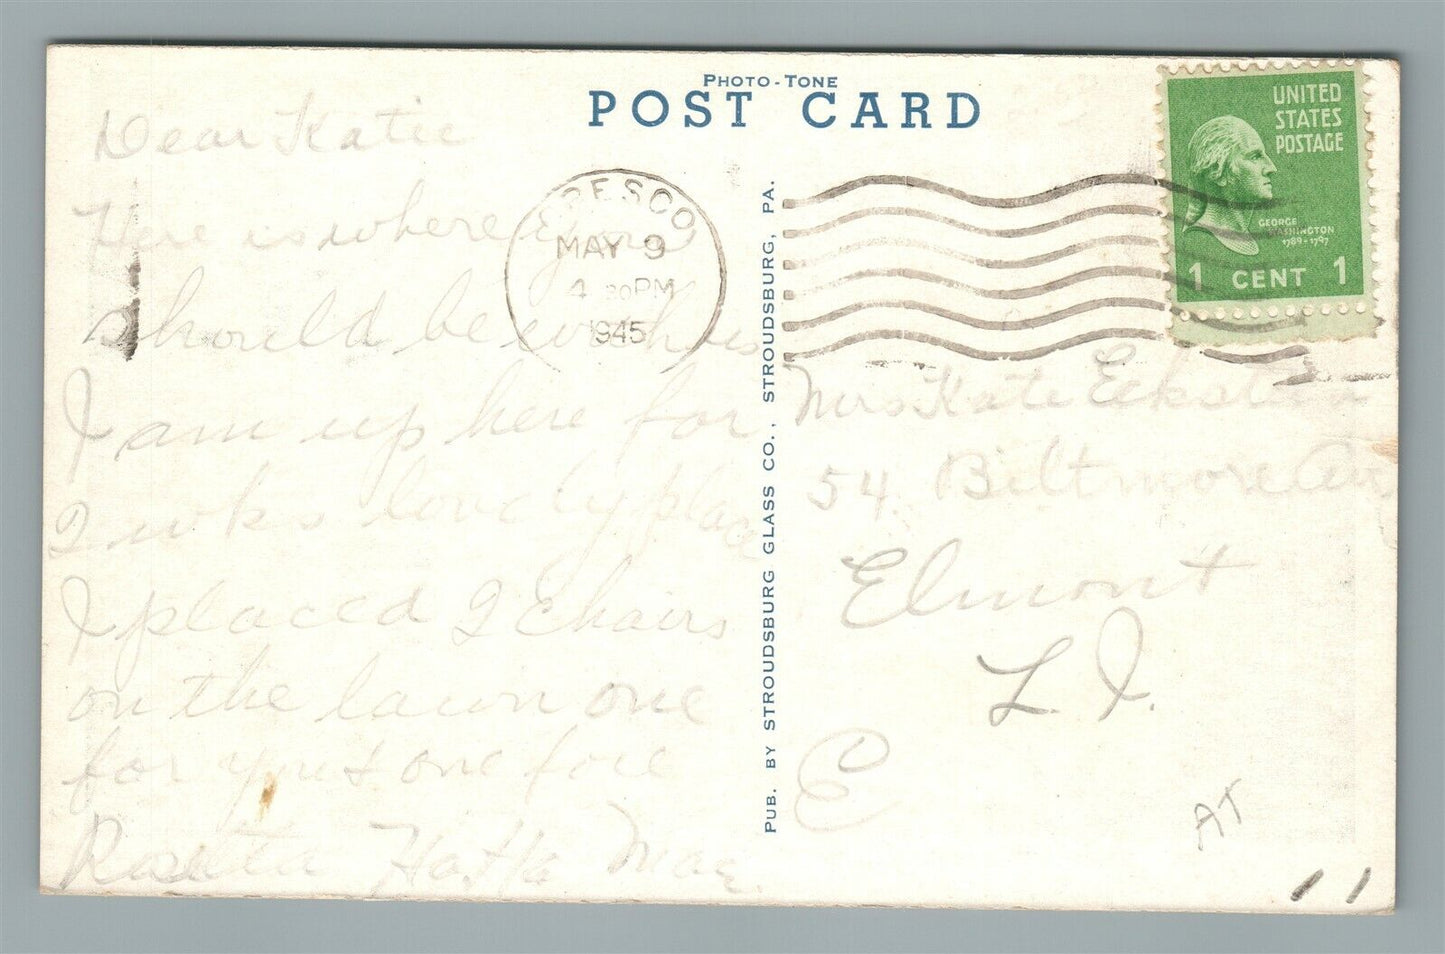 PHOTO-TONE
POST CARD
UNITED
STATES
POSTAGE
GEORGE
WASHINGTON
1789-1797
1 CENT 1
CRESCO
MAY 9
4 30PM
1945
PUB. BY STROUDSBURG GLASS CO., STROUDSBURG, PA.
Dear Katie
Here is where you
should be with us
I am up here for
2 wks lovely place
I placed 2 Chairs
on the lawn one
for you & one for
Rosetta Ha Ha Mae.
Mrs Kate Eckstein
54 Biltmore Ave
Elmont
L I.
E
AT